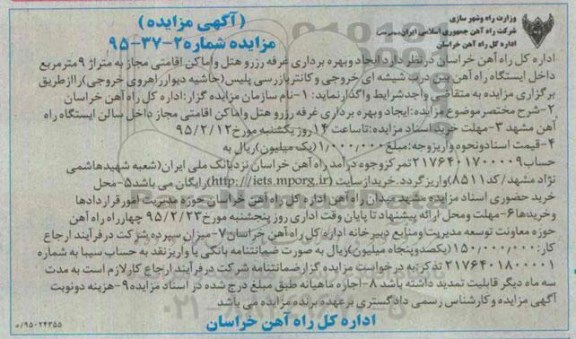 وزارت راه وشهر سازی
شرکت راه آهن جمهوری اسلامی ایران
اداره کل راه آهن خراسان
(آگهی مزایده)
مزایده شماره ۲-۳۷-۹۵
اداره کل راه آهن خراسان درنظر دارد ایجاد وبهره برداری غرفه رزرو هتل واماکن اقامتی مجاز به متراژ ۹مترمربع
داخل ایستگاه راه آهن بین درب شیشه ای خروجی و کانتر بازرسی پلیس(حاشیه دیوار راهروی خروجی)رااز طریق
برگزاری مزایده به متقاضی واجدشرایط واگذار نماید: ۱-نام سازمان مزایده گزار:اداره کل راه آهن خراسان
۲-شرح مختصرموضوع مزایده:ایجاد وبهره برداری غرفه رزرو هتل واماکن اقامتی مجاز داخل سالن ایستگاه راه
آهن مشهد ۳-مهلت خرید اسناد مزایده:تاساعت ۱۴روز یکشنبه مورخ ۹۵/۲/۱۲
۴-قیمت اسنادونحوه واریزوجه:مبلغ ۱/۰۰۰/۰۰۰(یک میلیون)ریال به
حساب ۲۱۷۶۴۰۱۷۰۰۰۰۹تمرکزوجوه درآمد راه آهن خراسان نزدبانک ملی ایران(شعبه شهیدهاشمی
نژاد مشهد/کد۸۵۱۱)واریز گردد.خریدازسایت (http://iets.mporg.ir)رایگان می باشد۵-محل
خرید حضوری اسناد مزایده مشهد میدان راه آهن اداره کل راه آهن خراسان حوزه مدیریت امور قراردادها
وخریدها۶-مهلت ومحل ارائه پیشنهاد تا پایان وقت اداری روز پنجشنبه مورخ ۹۵/۲/۲۳ چهارراه راه آهن
حوزه معاونت توسعه مدیریت ومنابع دبیرخانه اداره کل راه آهن خراسان۷-میزان سپرده شرکت در فرآیند ارجاع
کار:۱۵۰/۰۰۰/۰۰۰(یکصدوپنجاه میلیون)ریال به صورت ضمانتنامه بانکی یا واریز نقد به حساب سیبا به شماره
۲۱۷۶۴۰۱۸۰۰۰۰۱ تذکر:به درخواست مزایده گزار ضمانتنامه شرکت در فرآیند ارجاع کار لازم است به مدت
سه ماه دیگر قابلیت تمدید داشته باشد ۸-اجازه ماهیانه طبق مبلغ درج شده در اسناد مزایده ۹-هزینه دونوبت
آگهی مزایده و کارشناس رسمی دادگستری برعهده برنده مزایده می باشد
اداره کل راه آهن خراسان
۹۵۰۲۴۳۵۵/م